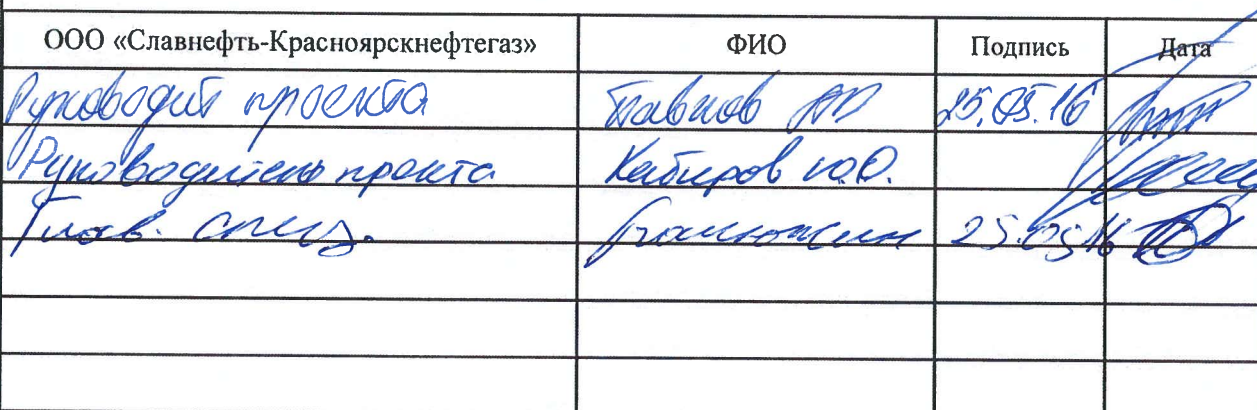 ООО «Славнефть-Красноярскнефтегаз» ФИО Подпись Дата
Руководит проекта Павлов 25.05.16
Руководитель проекта Кабиров Ю.О.
Глав. спец. 25.05.16